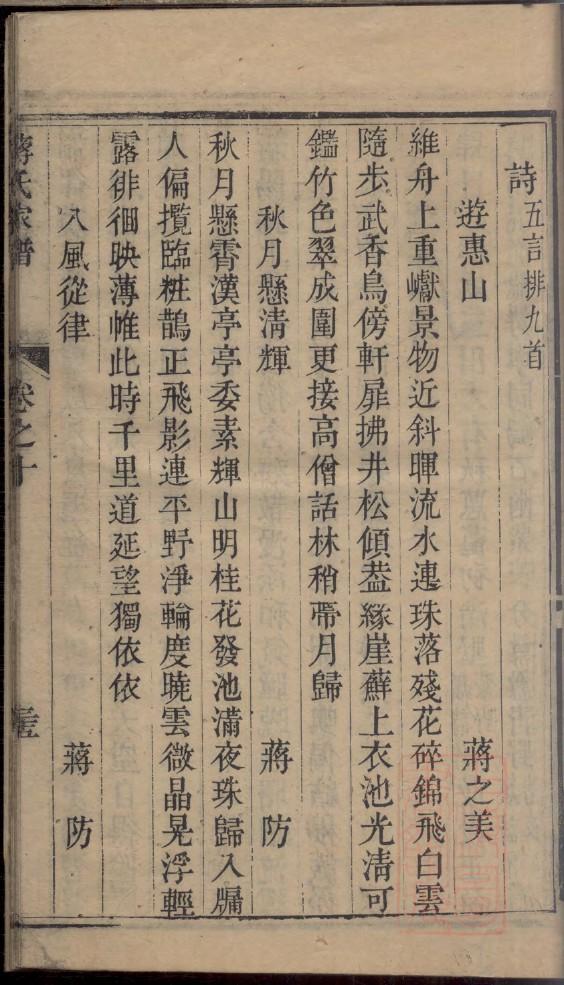 詩五言排九首
遊惠山 蔣之美
維舟上重巘景物近斜暉流水連珠落殘花碎錦飛白雲
隨步武香鳥傍軒扉拂井松傾葢緣崖蘚上衣池光淸可
鑑竹色翠成圍更接高僧話林稍帶月歸
秋月懸淸輝 蔣防
秋月懸霄漢亭亭委素輝山明桂花發池滿夜珠歸入牖
人偏攬臨粧鵲正飛影連平野淨輪度曉雲微晶晃浮輕
露徘徊映薄帷此時千里道延望獨依依
八風從律 蔣防
蔣氏家譜 卷之十